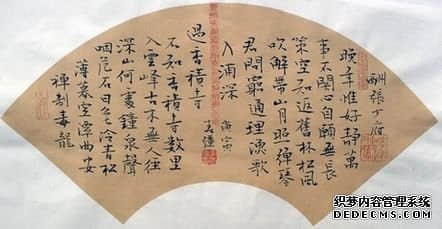 酬張少府
晚年惟好靜萬
事不關心自顧無長
策空知返舊林松風
吹解帶山月照彈琴
君問窮通理漁歌
入浦深 庚寅
過香積寺
不知香積寺數里
入雲峰古木無人徑
深山何處鐘泉聲
咽危石日色冷青松
薄暮空潭曲安
禪制毒龍
织梦内容管理系统
DEDECMS.COM